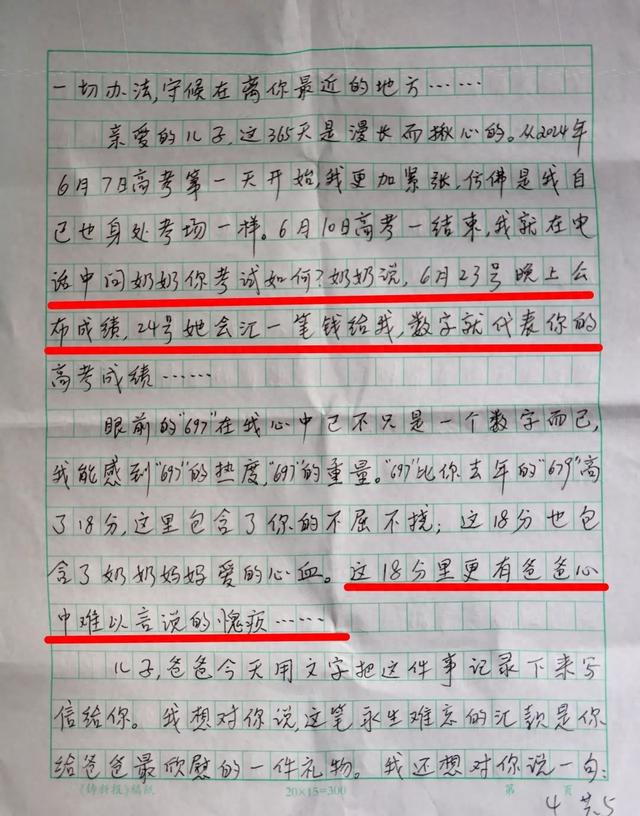 一切办法,守候在离你最近的地方……
亲爱的儿子,这365天是漫长而揪心的。从2024年
6月7日高考第一天开始,我更加紧张,仿佛是我自
己也身处考场一样。6月10日高考一结束,我就在电
话中问奶奶你考试如何?奶奶说,6月23号晚上公
布成绩,24号她会汇一笔钱给我,数字就代表你的
高考成绩……
眼前的"697"在我心中已不只是一个数字而已,
我能感到"697"的热度,"697"的重量。"697"比你去年的"679"高
了18分,这里包含了你的不屈不挠;这18分也包
含了奶奶妈妈爱的心血。这18分里更有爸爸心
中难以言说的愧疚……
儿子,爸爸今天用文字把这件事记录下来写
信给你。我想对你说,这笔永生难忘的汇款是你
给爸爸最欣慰的一件礼物。我还想对你说一句:
《新新报》稿纸 20×15=300 第 页
4 共5